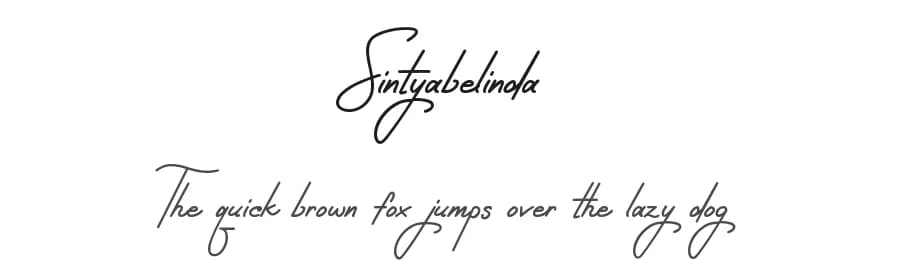 Sintyabelinda
The quick brown fox jumps over the lazy dog